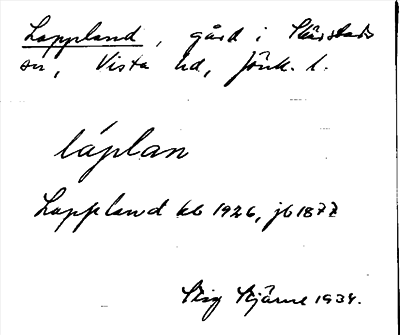 Lappland, gård i Skärstads
sn, Vista hd, Jönk. l.
láplan
Lappland kb 1926, jb 1877
Stig Stjärne 1934.